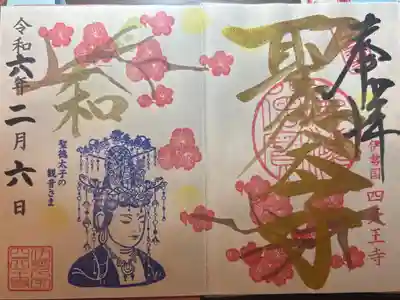 奉拝
聖徳太子
伊勢国 四天王寺
和
聖徳太子の
観音さま
令和六年二月六日